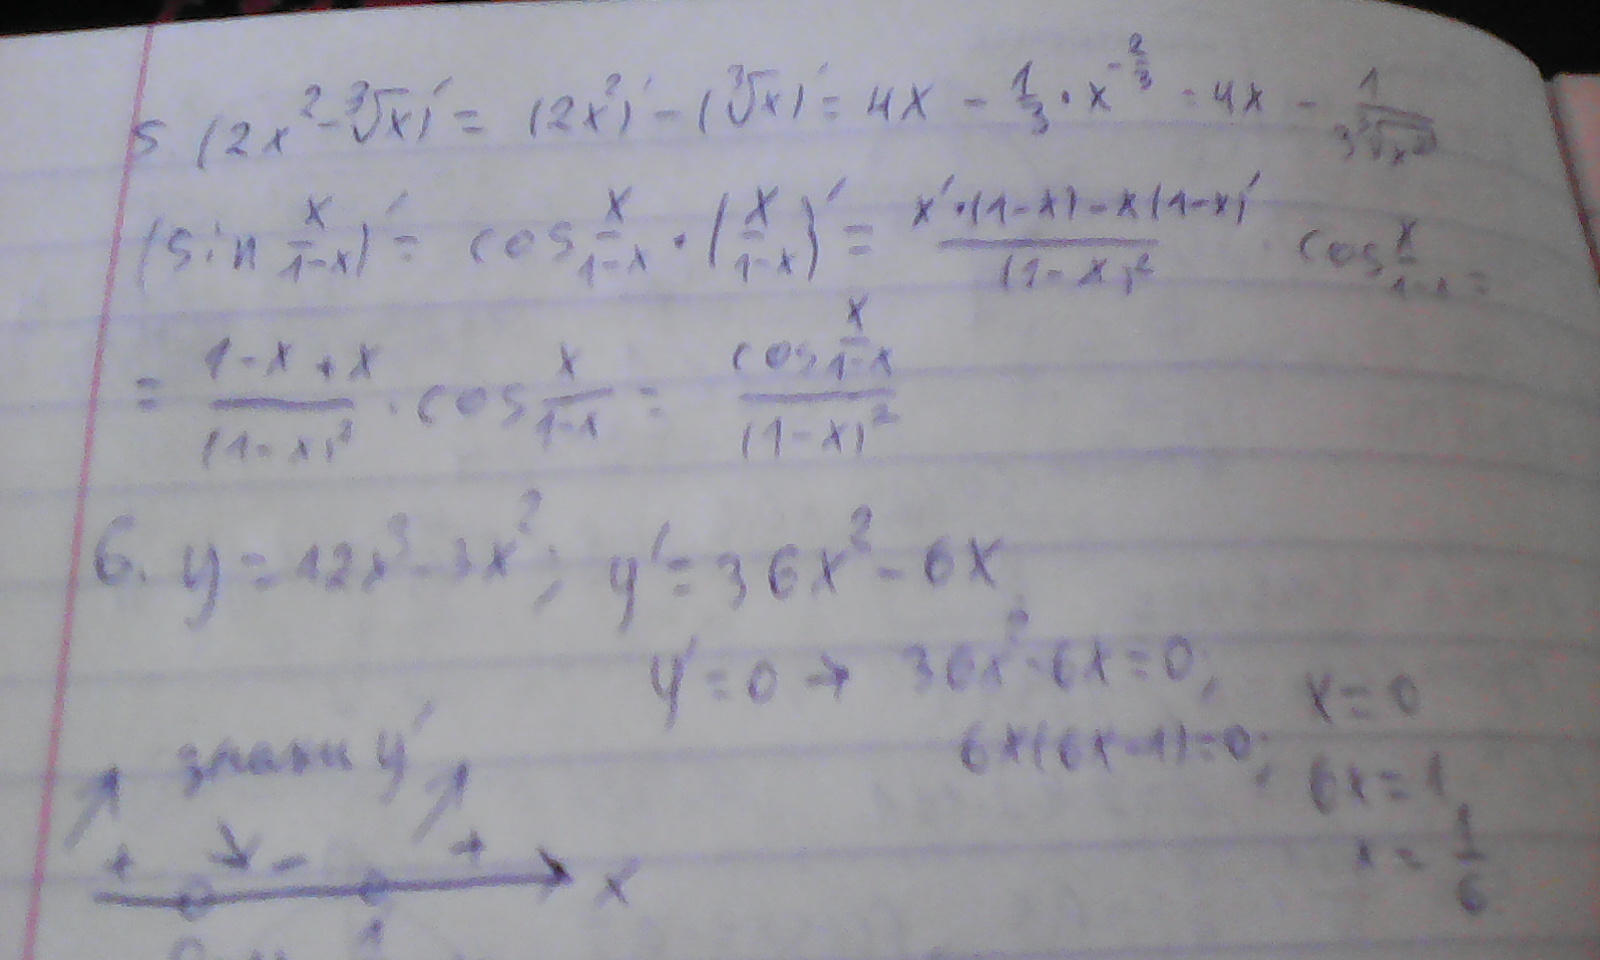 5 (2x² - ∛x)' = (2x²)' - (∛x)' = 4x - 1/3 · x^(-2/3) = 4x - 1/(3∛x²)
(sin x/(1-x))' = cos x/(1-x) · (x/(1-x))' = (x'·(1-x) - x(1-x)')/(1-x)² · cos x/(1-x) =
= (1-x+x)/(1-x)² · cos x/(1-x) = (cos x/(1-x))/(1-x)²
6. y = 12x³ - 3x²; y' = 36x² - 6x
y' = 0 → 36x² - 6x = 0; x = 0
6x(6x-1) = 0; 6x = 1
x = 1/6
знаки y'
+ - + x
0 1